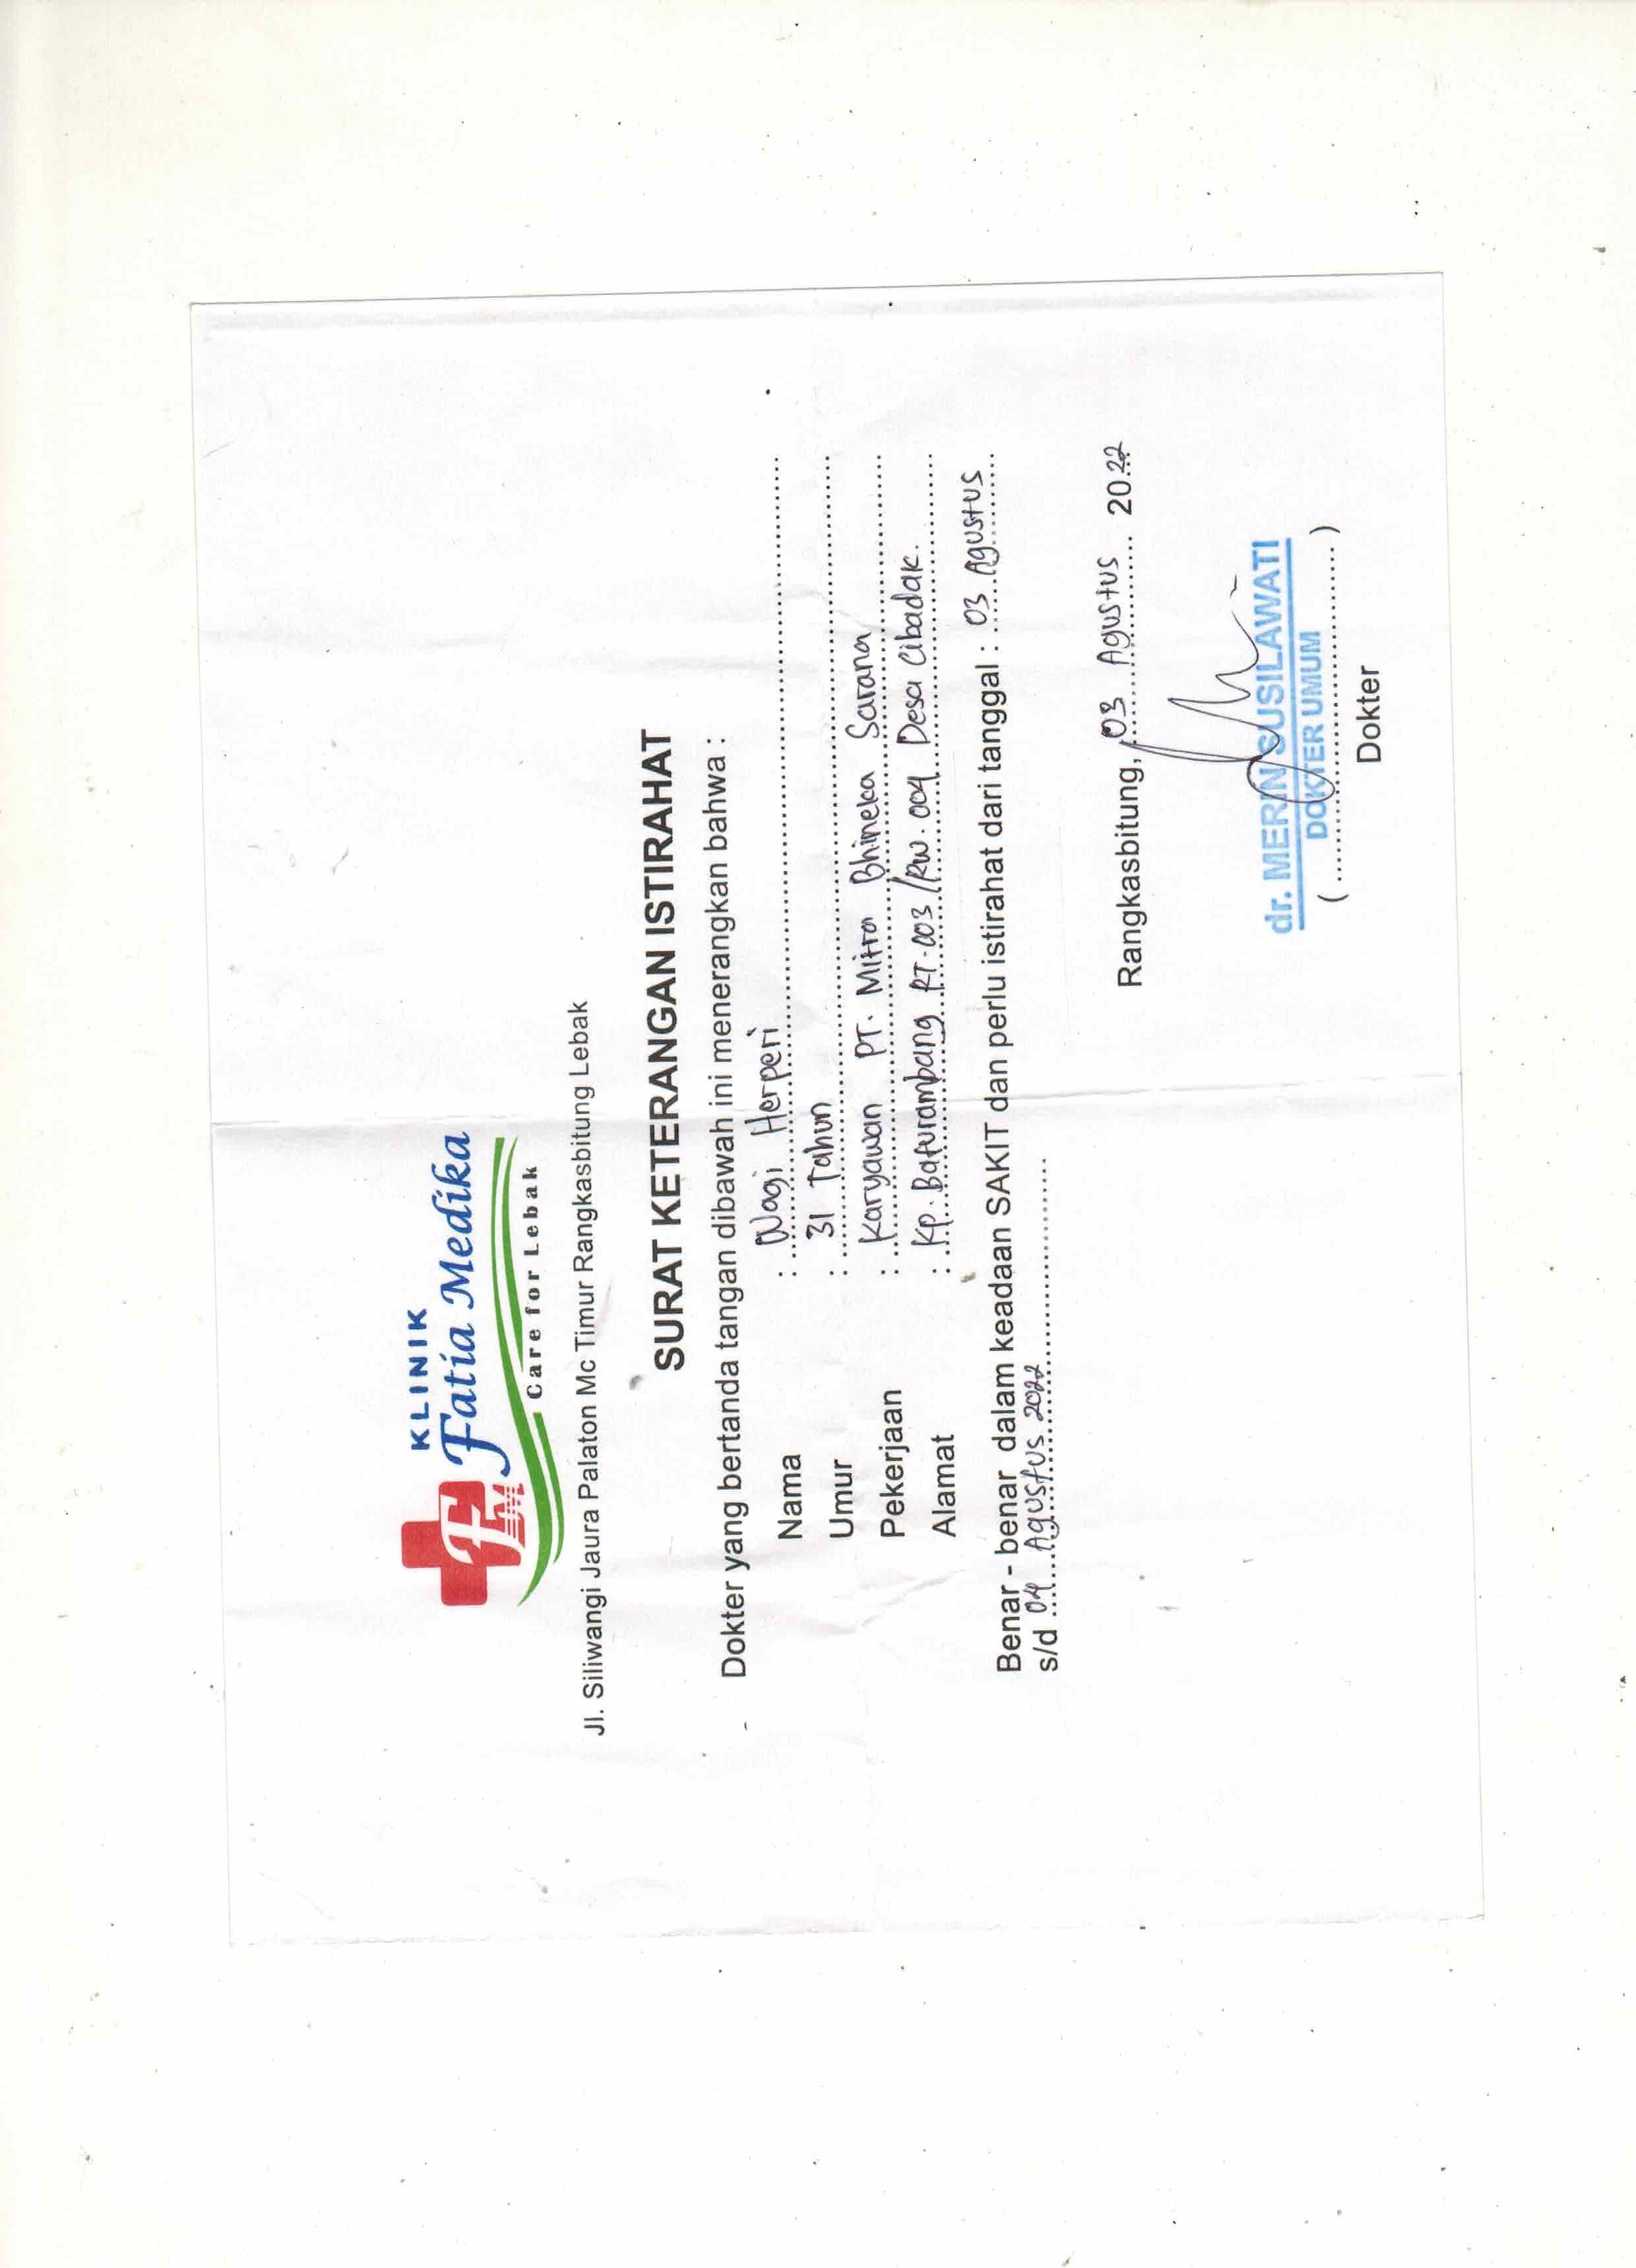 KLINIK
Fatia Medika
FM
Care for Lebak
Jl. Siliwangi Jaura Palaton Mc Timur Rangkasbitung Lebak
SURAT KETERANGAN ISTIRAHAT
Dokter yang bertanda tangan dibawah ini menerangkan bahwa :
Nama : Wagi Herperi
Umur : 31 Tahun
Pekerjaan : Karyawan PT. Mitra Bhineka Sarana
Alamat : Kp. Baturambang RT.003 /RW.004 Desa Cibadak.
Benar - benar dalam keadaan SAKIT dan perlu istirahat dari tanggal : 03 Agustus
s/d 04 Agustus 2022
Rangkasbitung, 03 Agustus 2022
dr. MERIN SUSILAWATI
DOKTER UMUM
(....................................)
Dokter